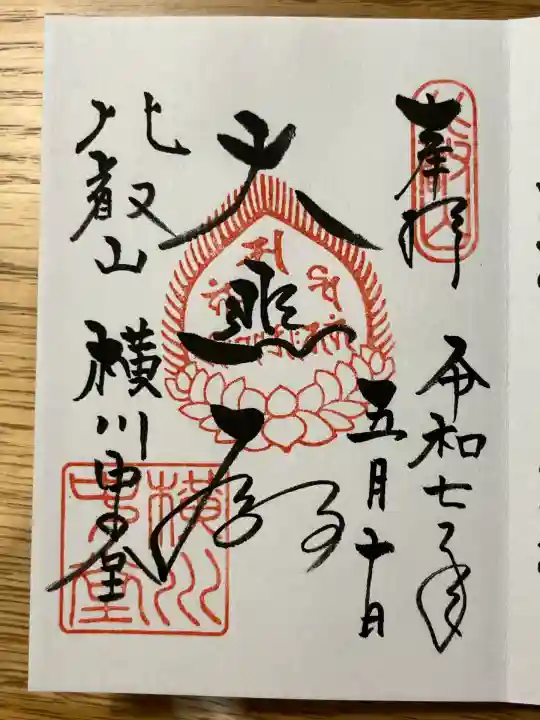 奉拝
令和七年
五月十日
大悲殿
比叡山
横川中堂
比叡山
横川
中堂